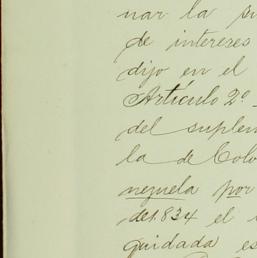 nar la
de intereses
dijo en el
Artículo 2º
del suplem
la de Colo
nezuela por
de 1.834 el
quidada es